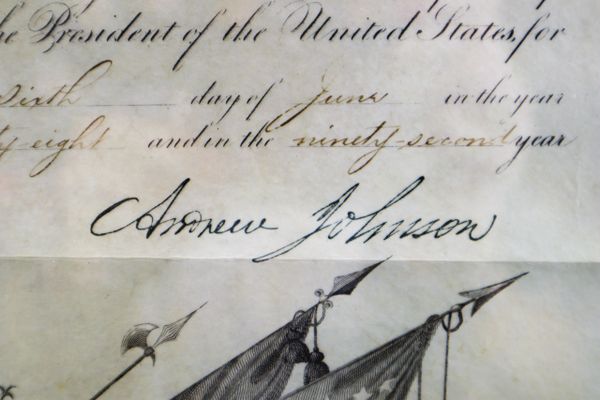 he President of the United States, for
sixth day of June in the year
ty-eight and in the ninety-second year
Andrew Johnson